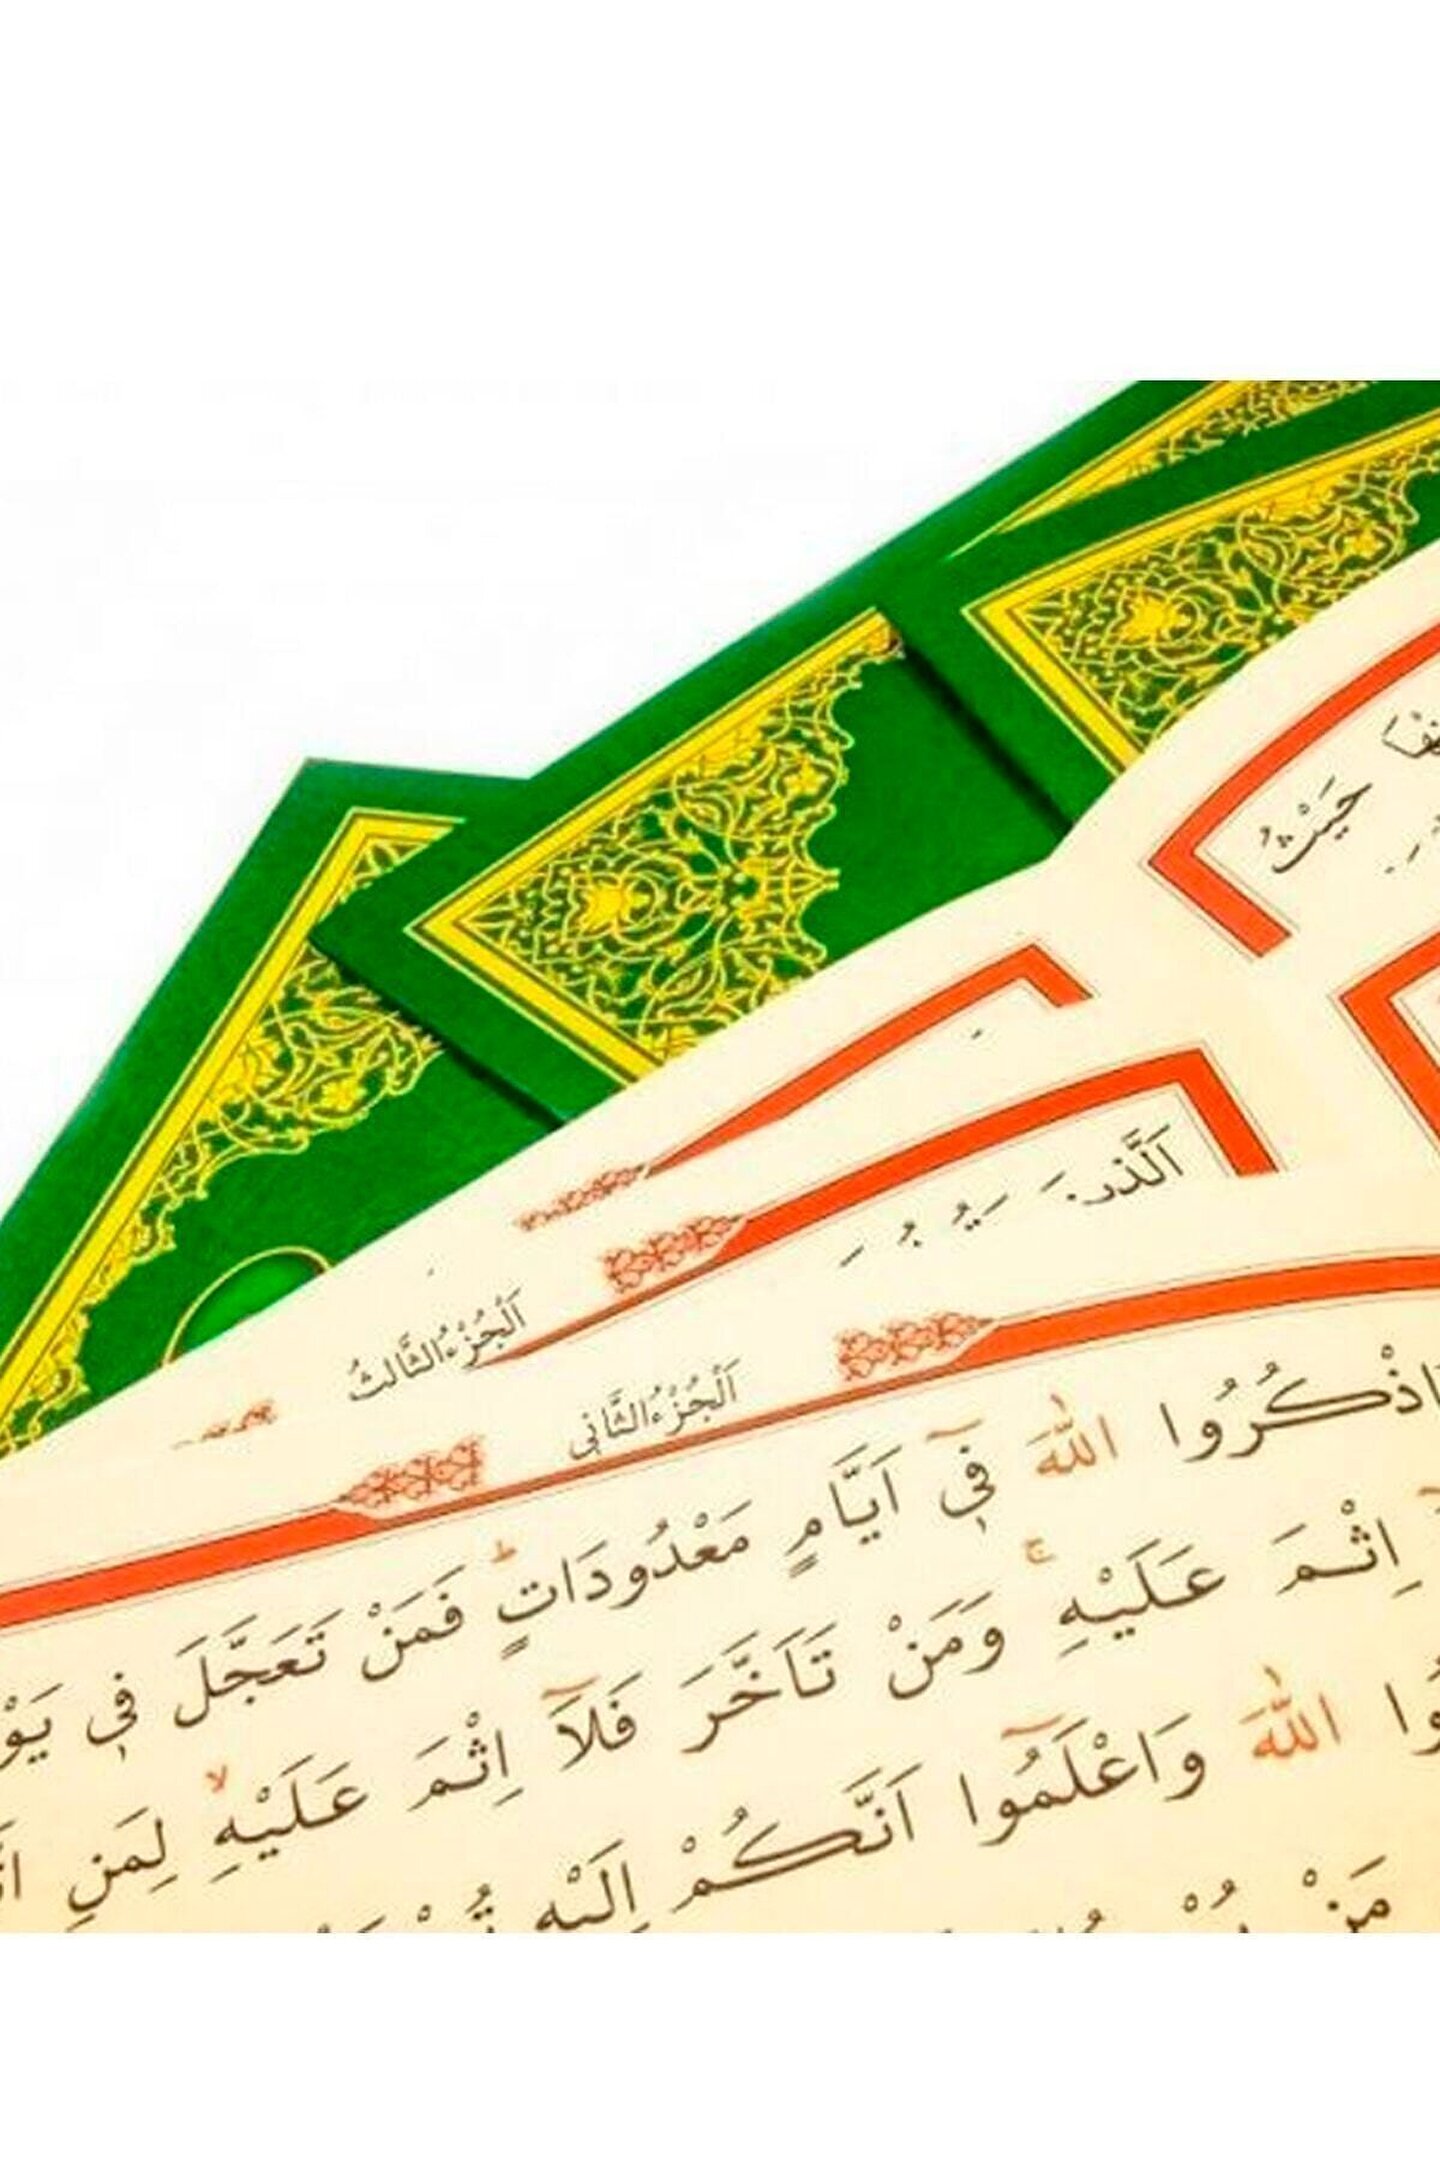 حَيْثُ
اَلْجُزْءُ الثَّالِثُ
اَلْجُزْءُ الثَّانِي
اذْكُرُوا اللّٰهَ فٖٓي اَيَّامٍ مَعْدُودَاتٍؕ فَمَنْ تَعَجَّلَ فٖي
اِثْمَ عَلَيْهِۚ وَمَنْ تَاَخَّرَ فَلَٓا اِثْمَ عَلَيْهِۙ لِمَنِ
اللّٰهَ وَاعْلَمُٓوا اَنَّكُمْ اِلَيْهِ
مَنْ